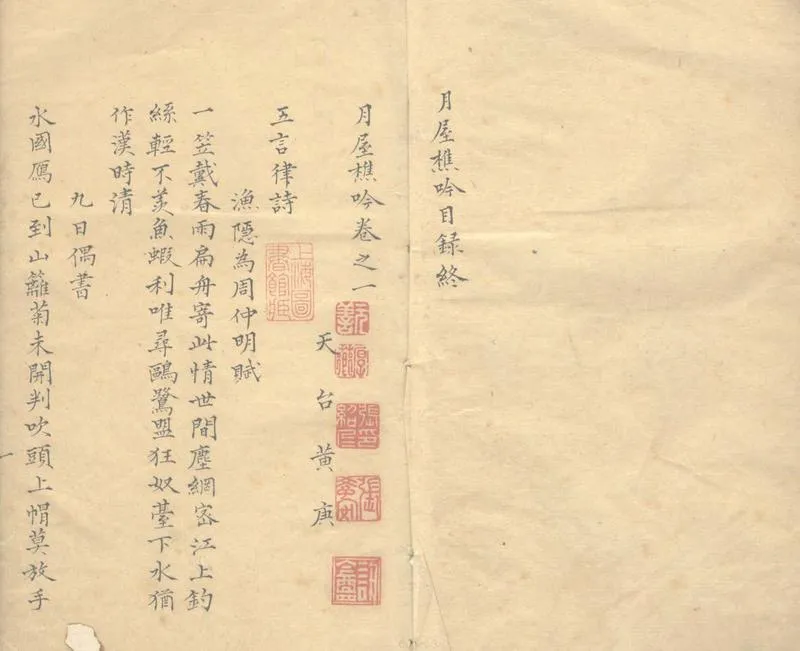 月屋樵吟目録終
月屋樵吟卷之一
天台黃庚
五言律詩
漁隱為周仲明賦
一笠戴春雨扁舟寄此情世間塵網密江上釣
絲輕不羡魚蝦利唯尋鷗鷺盟狂奴臺下水猶
作漢時清
九日偶書
水國鴈已到山籬菊未開判吹頭上帽莫放手
一
上海圖
書館藏